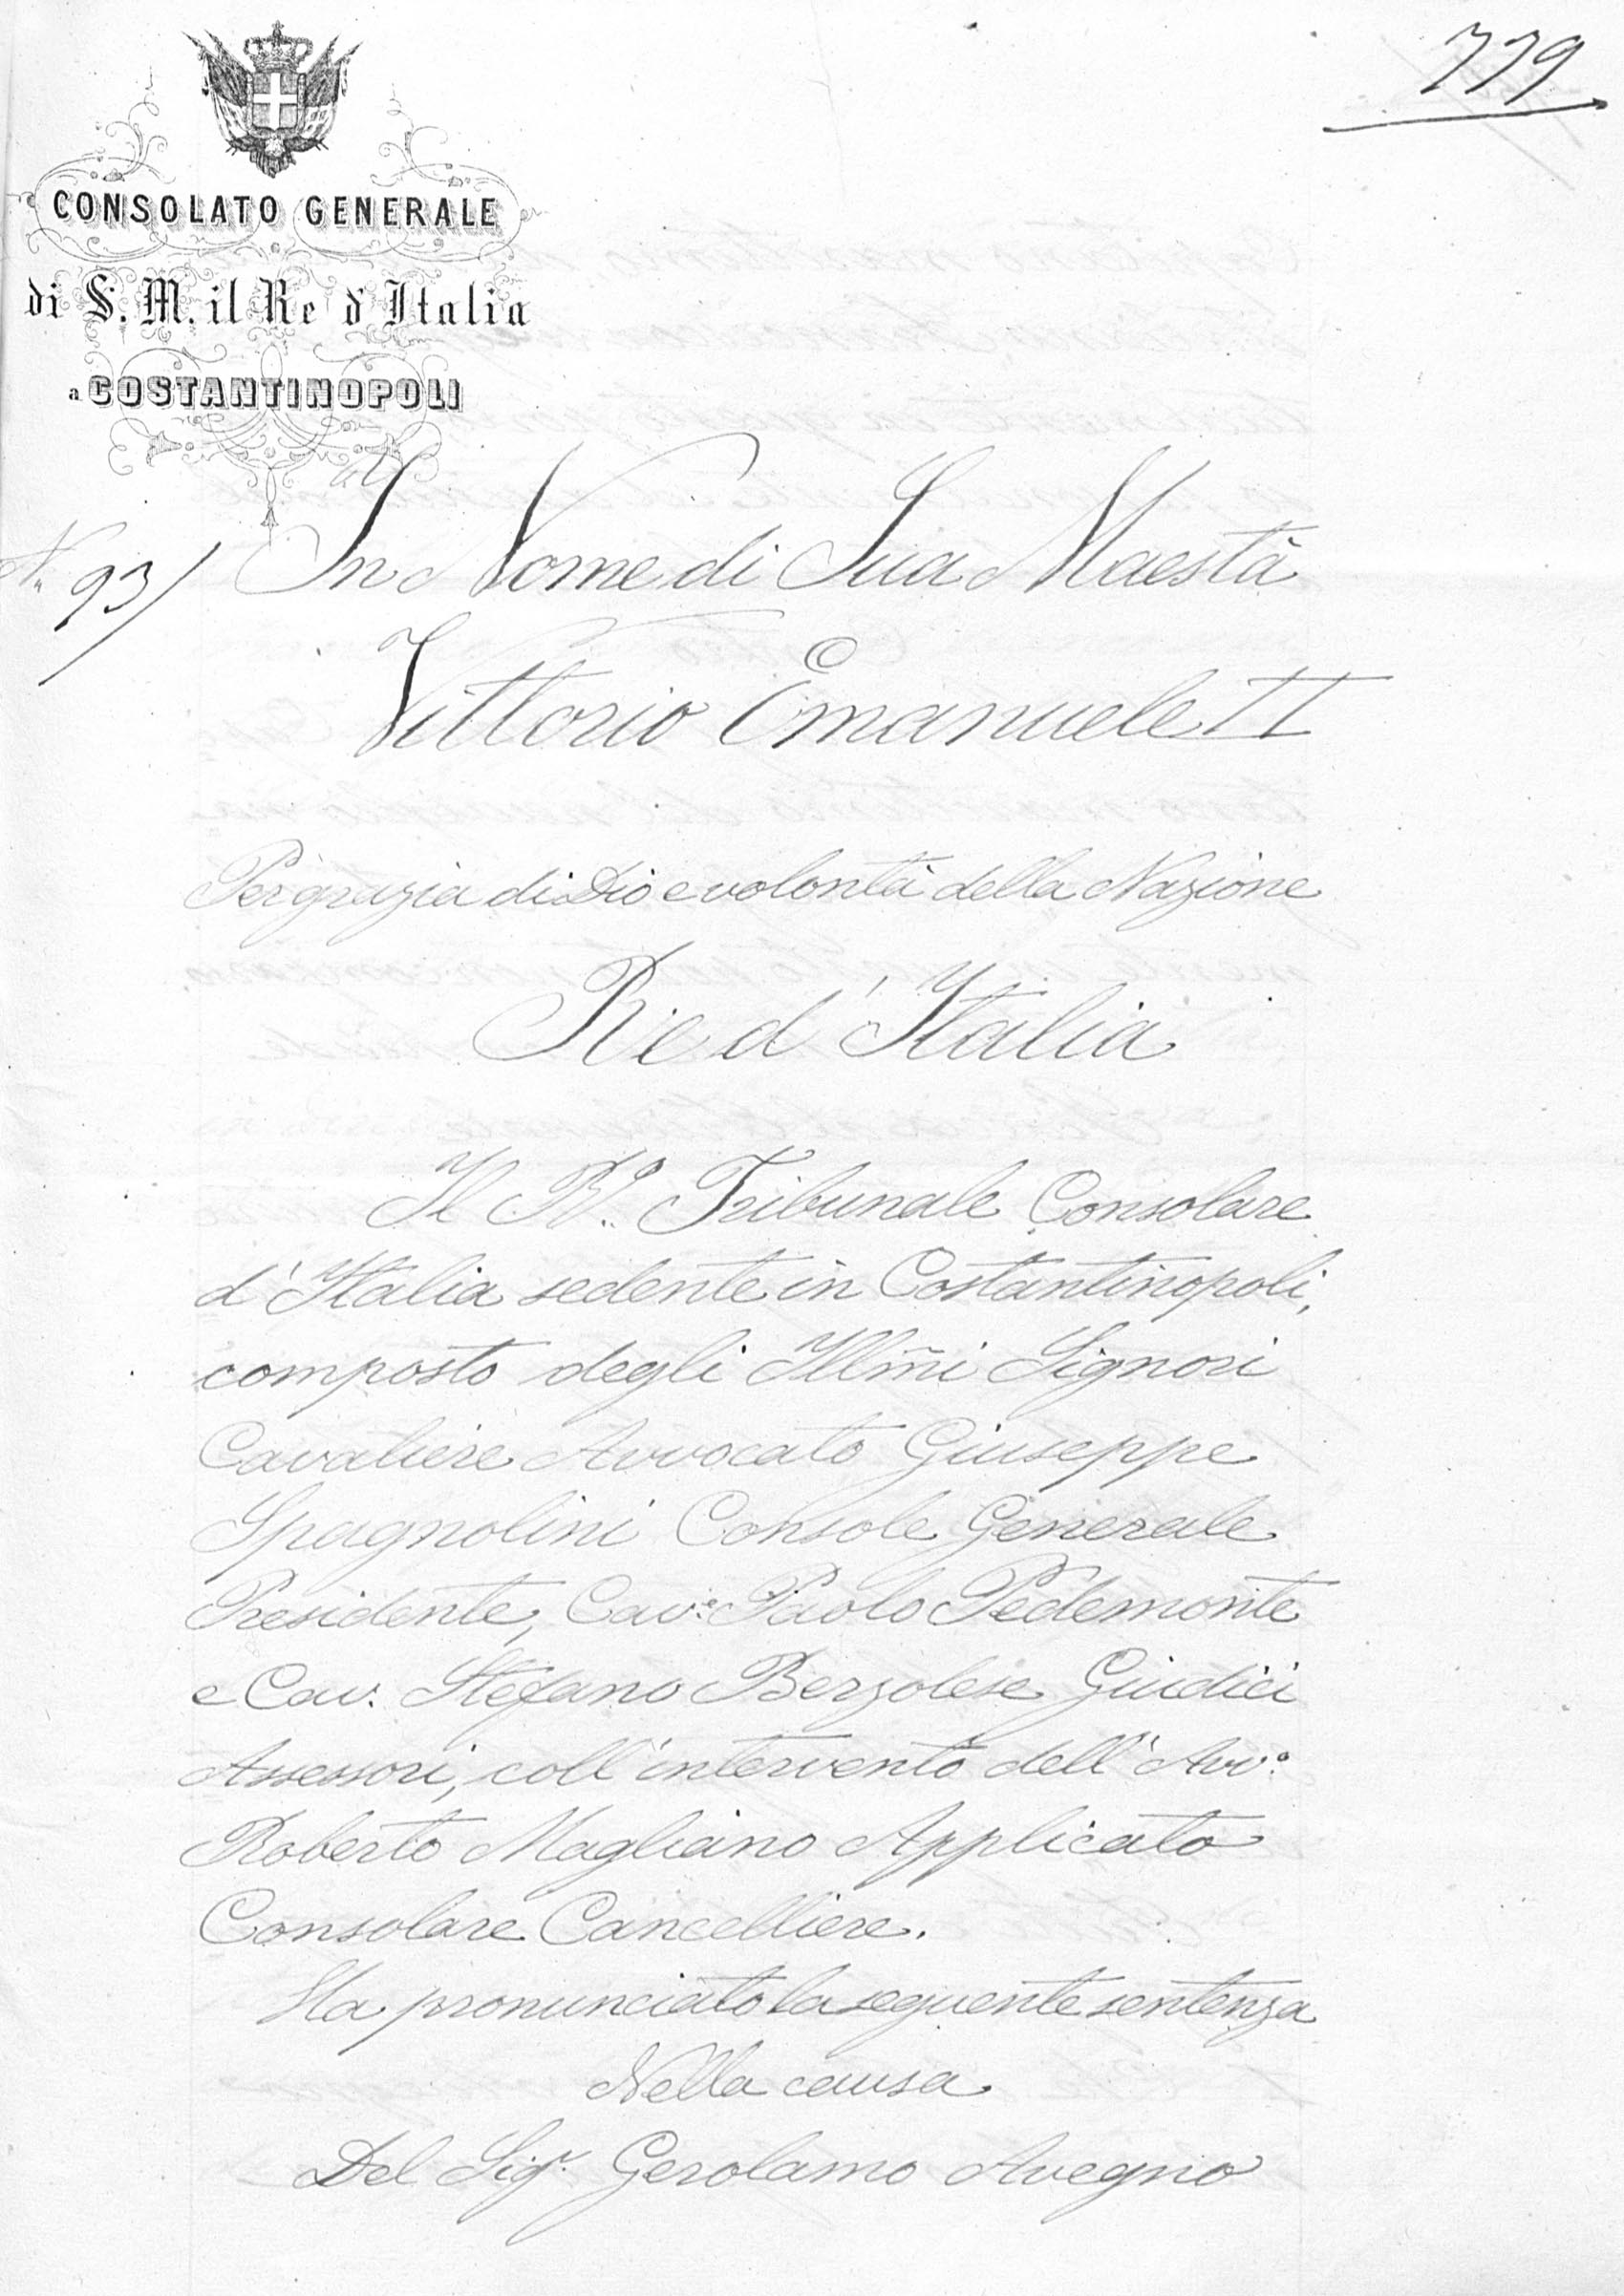 779
CONSOLATO GENERALE
di S. M. il Re d'Italia
a COSTANTINOPOLI
N.º 93/
In Nome di Sua Maestà
Vittorio Emanuele II
Per grazia di Dio e volontà della Nazione
Re d'Italia
Il R.º Tribunale Consolare
d'Italia sedente in Costantinopoli,
composto degli Illm̃i Signori
Cavaliere Avvocato Giuseppe
Spagnolini Console Generale
Presidente, Cav.e Paolo Pedemonte
e Cav. Stefano Berzolese Giudici
Assessori, coll'intervento dell'Avv.º
Roberto Magliano Applicato
Consolare Cancelliere.
Ha pronunciato la seguente sentenza
Nella causa
Del Sig.r Gerolamo Avegno